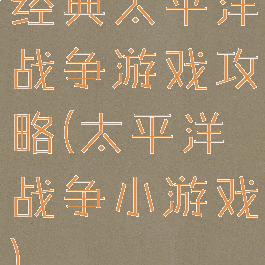 经典太平洋
战争游戏攻
略(太平洋
战争小游戏
)